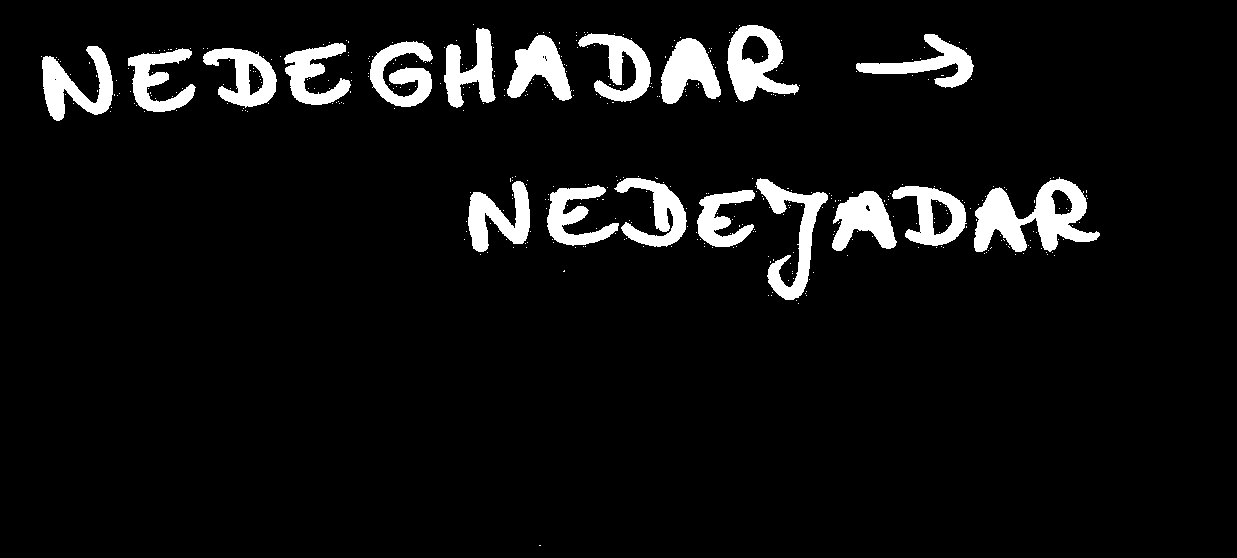 NEDEGHADAR →
NEDEJADAR